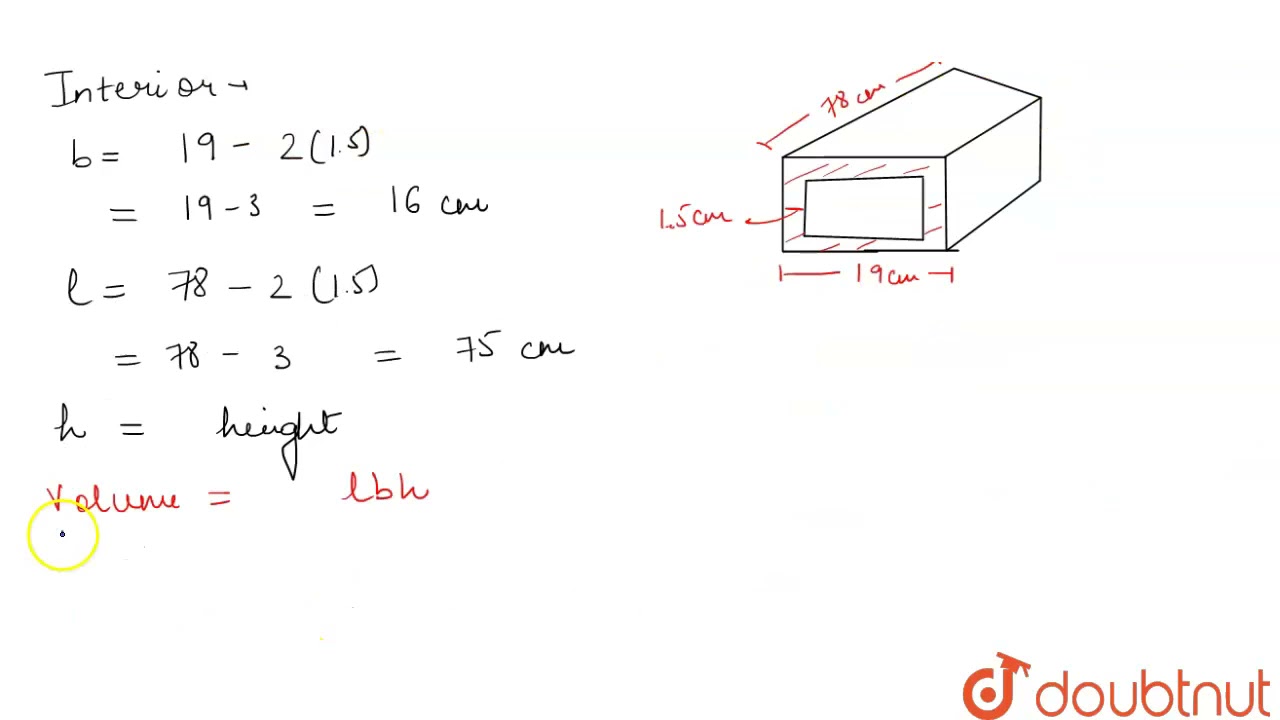 Interior →
b = 19 - 2(1.5)
= 19 - 3 = 16 cm
l = 78 - 2(1.5)
= 78 - 3 = 75 cm
h = height
Volume = lbh
78 cm
1.5cm
19cm
doubtnut